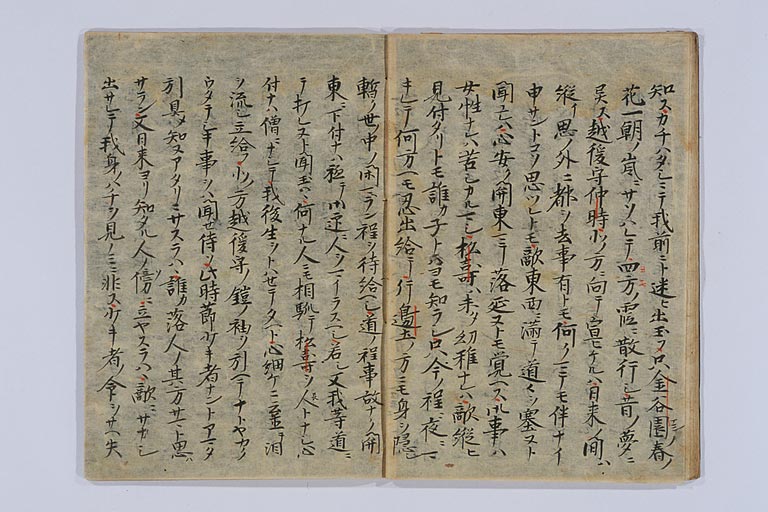 知スカチハタシミテ我前ニト迷ヒ出玉フ只金谷園春ノ
花一朝ノ嵐ニサソハレテ四方ノ霞ニ散行シ昔ノ夢ニ
異ス越後守仲時北ノ方ニ向テ宣ヒケルハ日来ノ間ハ
縦ヒ思ノ外ニ都ヲ去事有トモ何クマテモ伴ナイ
申サントコソ思ツレトモ敵東西ニ満テ道ヲ塞ヌト
聞エハ心安ク関東マテ落延ヌトモ覚ヘス御事ハ
女性ナレハ苦シカルマシ松寿ハ未タ幼稚ナレハ敵縦ヒ
見付タリトモ誰カ子トハヨモ知ラシ只今ノ程ニ夜ニマ
キレテ何方ヘモ忍出給テ片辺土ノ方ニモ身ヲ隠シ
暫ク世中ノ閑ラン程ヲ待給ヘシ道ノ程事故ナク関
東ニ下付ナハ軈テ御迎ニ人ヲマイラスヘシ若シ又我等道ニ
テ打レヌト聞玉ハ何ナル人ニモ相馴テ松寿ヲ人トナシ心
付ナハ僧ニナシテ我後生ヲトハセテタヘト心細ケニ云置泪
ヲ流シ立給ヘハ北ノ方越後守ノ鎧ノ袖ヲ引ヘテナトヤカク
ウタテシキ事ヲハ聞セ侍ソ此時節少キ者ナントアマタ
引具シ知ヌアタリニヤスラハヽ誰カ落人ノ其方サマト思ハ
サラン又日来ヨリ知タル人ノ傍ニ立ヤスラハヽ敵ニサカシ
出サレテ我身ノハチヲ見ノミニ非ス少キ者ノ命ヲサヘ失